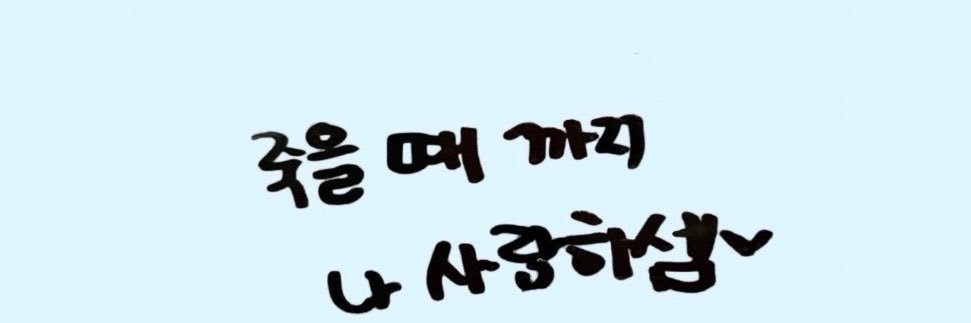 죽을 때 까지
나 사랑하셈♥